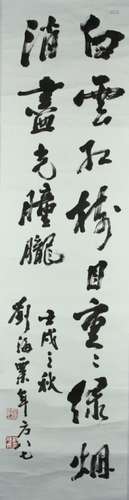 白雲紅樹目重〻綠烟
消盡見朣朧
壬戌之秋
劉海粟年方八七